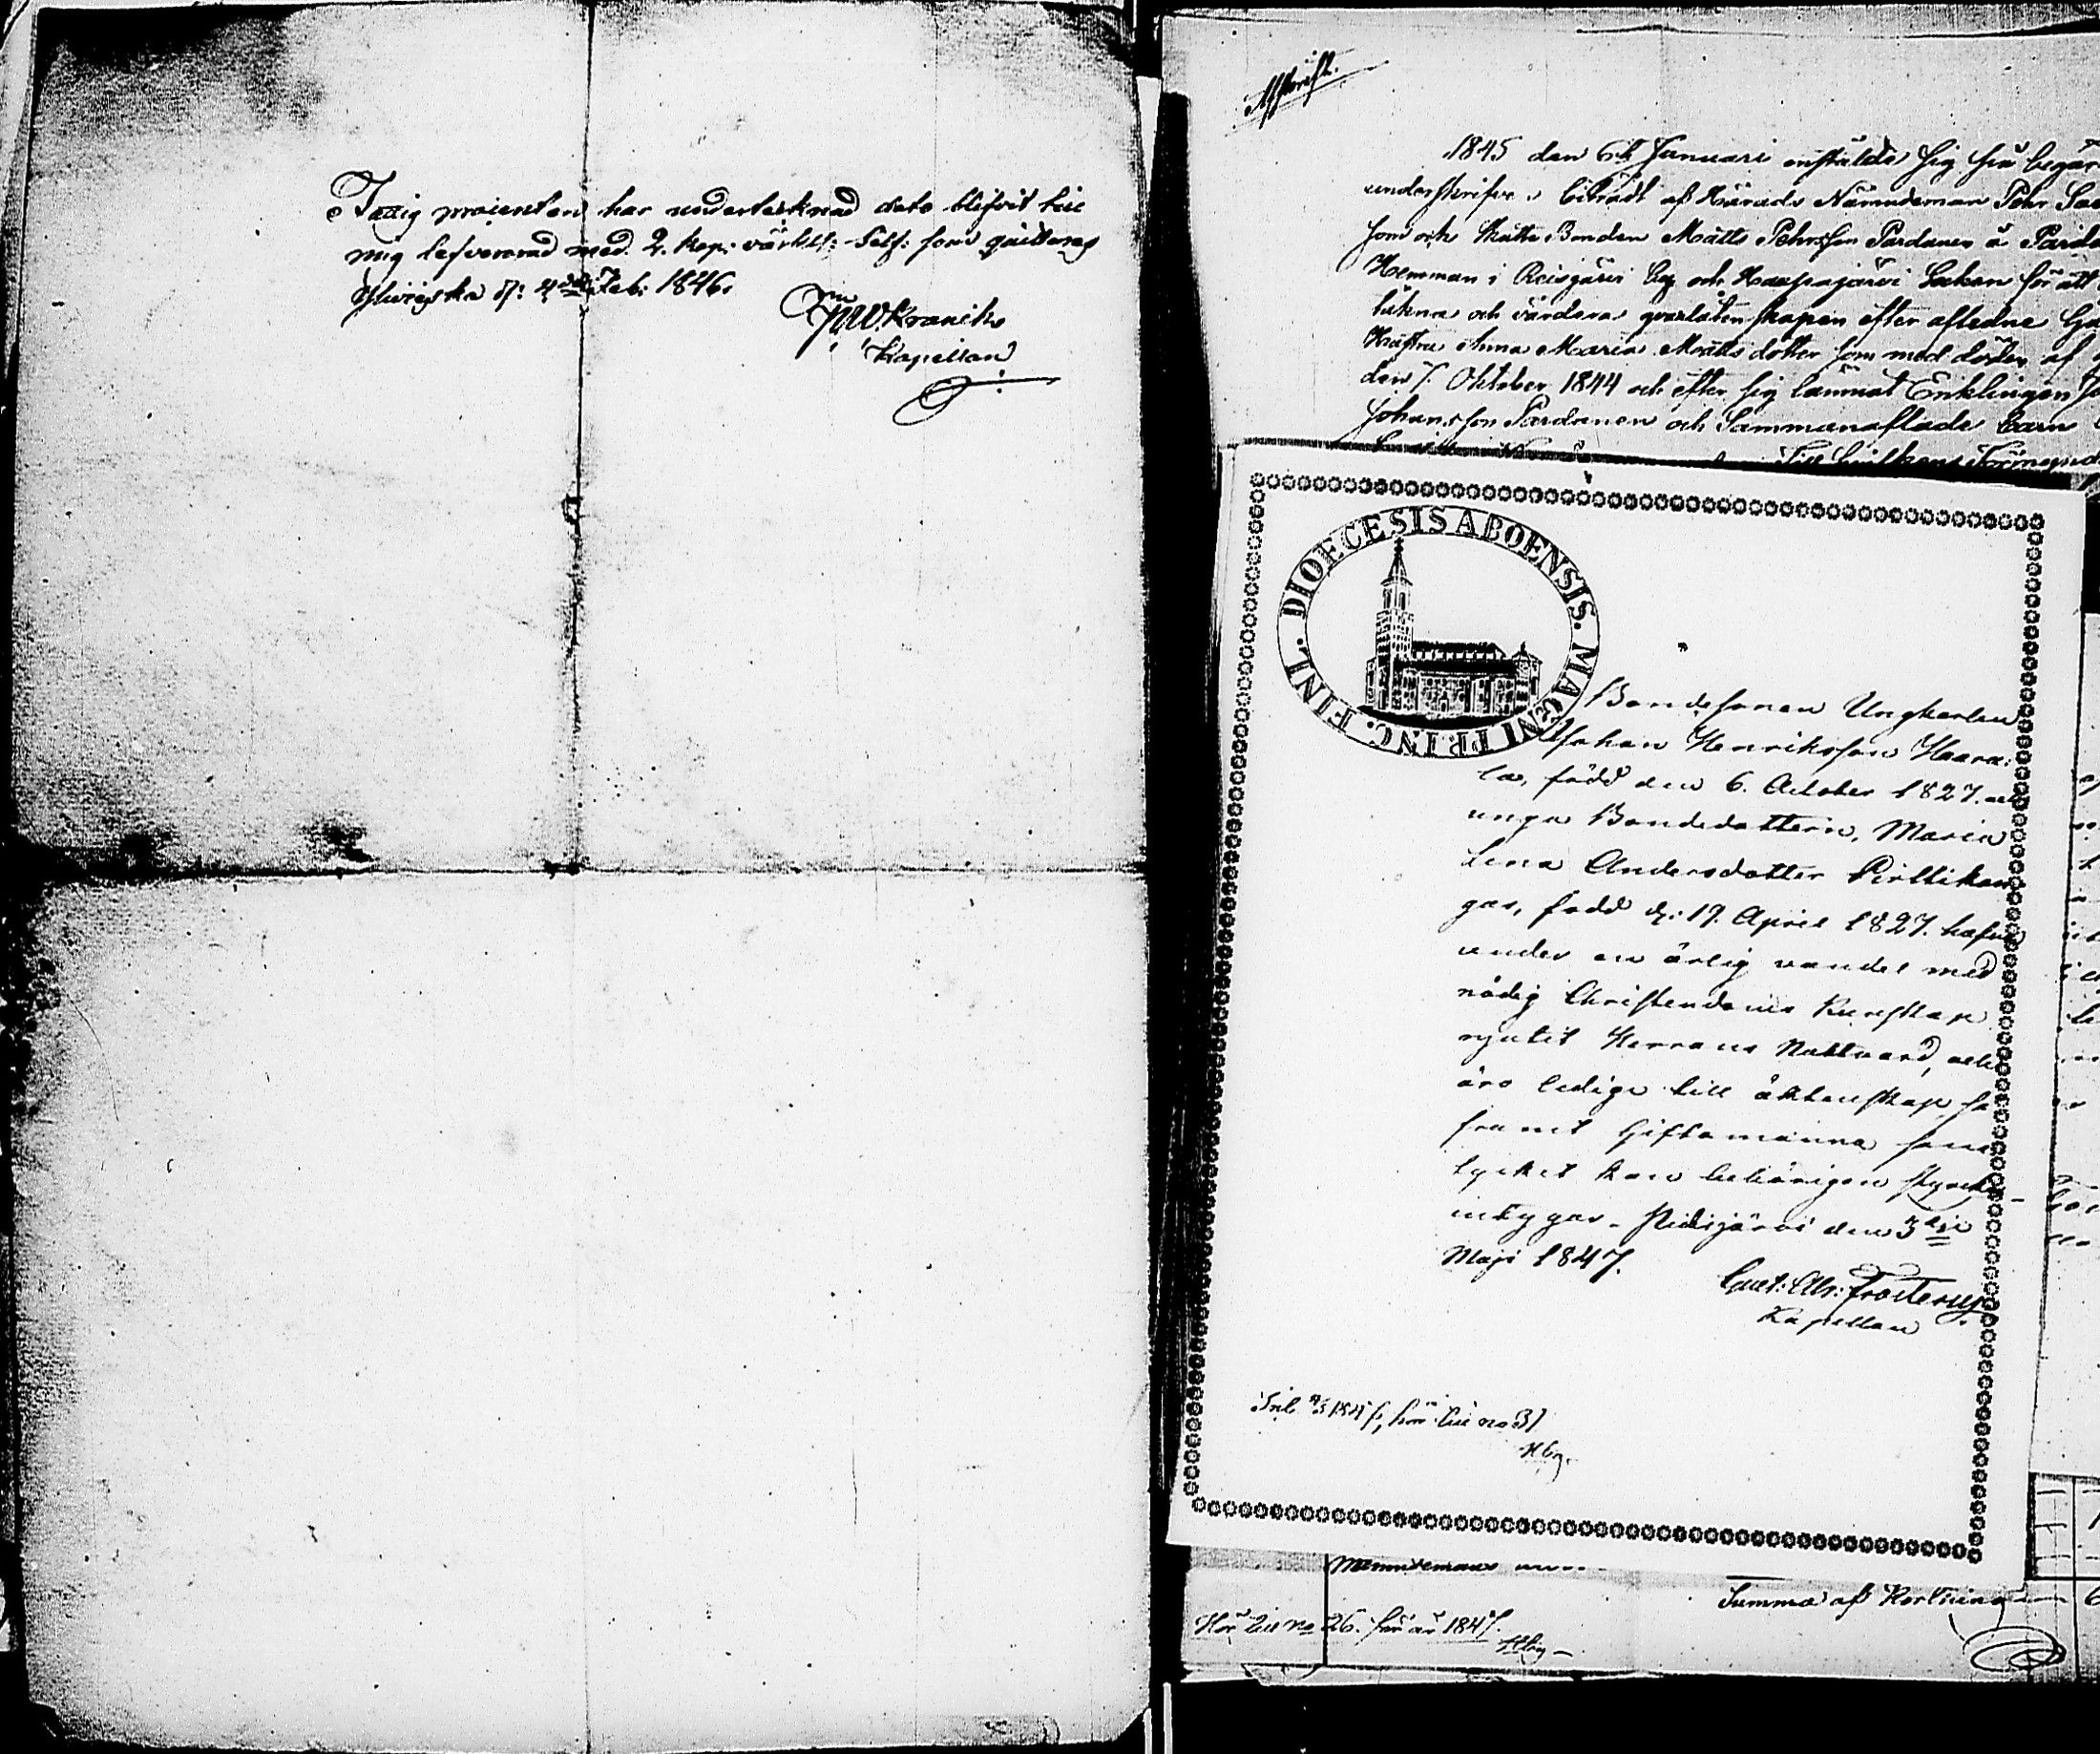 Fattig procenten har undertecknad dato blifvit till
mig lefvererad med 2. kop: värkel: Silf: som quitteras
Ylivieska d: 4de Feb: 1846.
Kranck
Kapellan
Afskrift.
1845 den 6te Januari instälde sig på begär
underskrifne biträdt af Härads Nämndeman Pehr
som och Skatte Bonden Matts Pehrsson Pardanen å
Hemman i Reisjärvi By och Haapajärvi Socken för att
tekna och värdera qvarlåtenskapen efter aflidne
Hustru Anna Maria Mattsdotter som med döden af
den 7. Oktober 1844 och efter sig lämnat Enklingen
Johansson Pardanen och Sammanaflade barn
Till hvilkens
DIOECESIS ABOENSIS. MAGNI PRINC. FINL.
Bondesonen Ungkarlen
Johan Henriksson Haara:
la, född den 6. October 1827. och
unga Bondedottern, Maria
Lena Andersdotter Pirttikan
gas, född d: 19. April 1827. hafva
under en ärlig vandel med
nödig Christendoms kunskap
njutit Herrans Nattvard, och
äro ledige till äktenskap så
framt Giftomanna sam
tycket kan behörigen styrkas
intygar. Pidisjärvi den 3die
Maji 1847.
Gust: Abr: Frosterus.
Kapellan
Inl. 1847, hör till no 31
Hbg.
Nämndemans
Summa af Kortning
Hör till no 26. för år 1847.
Hbg